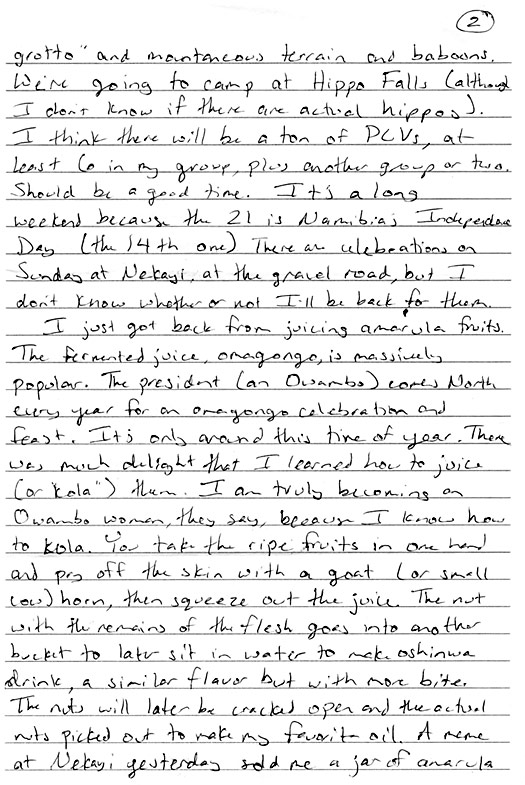 2
grotto" and mountaneous terrain and baboons.
We're going to camp at Hippo Falls (although
I don't know if there are actual hippos).
I think there will be a ton of PCVs, at
least 6 in my group, plus another group or two.
Should be a good time. It's a long
weekend because the 21 is Namibia's Independence
Day (the 14th one) There are celebrations on
Sunday at Nekayi, at the gravel road, but I
don't know whether or not I'll be back for them.
I just got back from juicing amarula fruits.
The fermented juice, omagongo, is massively
popular. The president (an Owambo) comes North
every year for an omagongo celebration and
feast. It's only around this time of year. There
was much delight that I learned how to juice
(or "kola") them. I am truly becoming an
Owambo woman, they say, because I know how
to kola. You take the ripe fruits in one hand
and pry off the skin with a goat (or small
cow) horn, then squeeze out the juice. The nut
with the remains of the flesh goes into another
bucket to later sit in water to make oshinwa
drink, a similar flavor but with more bite.
The nuts will later be cracked open and the actual
nuts picked out to make my favorite oil. A meme
at Nekayi yesterday sold me a jar of amarula